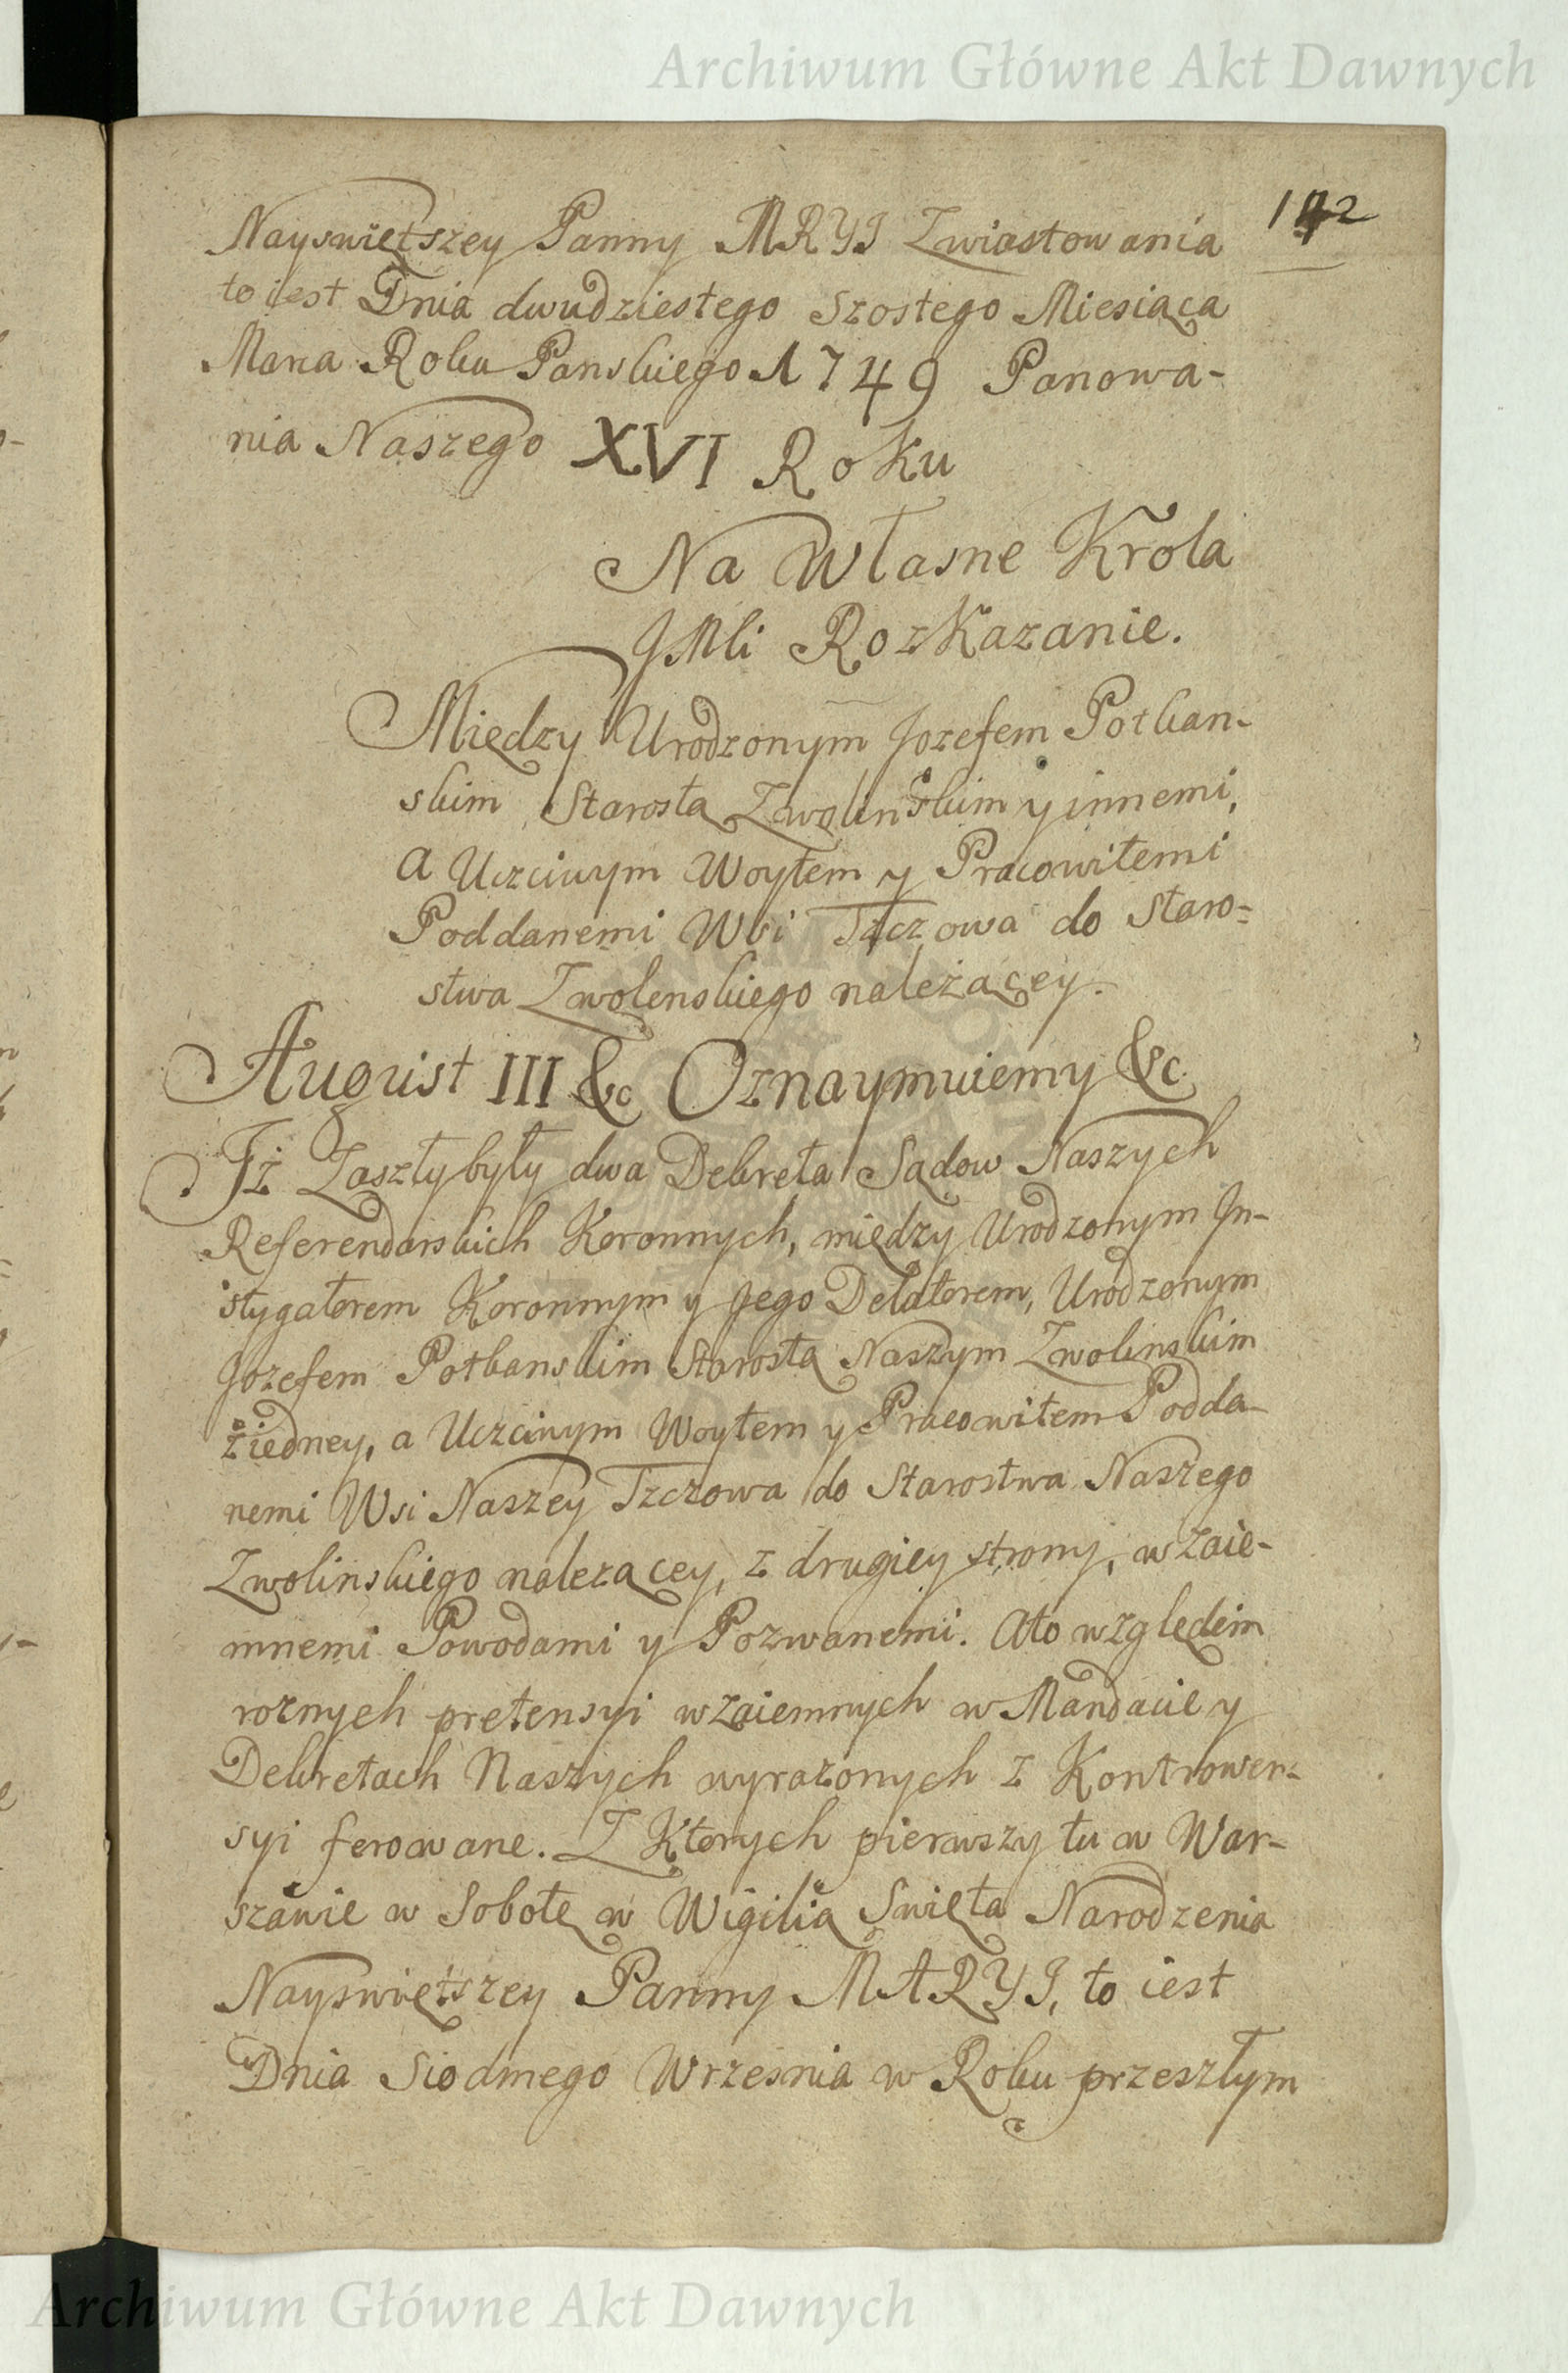 Archiwum Główne Akt Dawnych
142
Nayswiętszey Panny MRYI Zwiastowania
to iest Dnia dwudziestego Szostego Miesiąca
Marca Roku Panskiego 1749 Panowa-
nia Naszego XVI Roku
Na Własne Krola
JMCi Rozkazanie.
Między Urodzonym Jozefem Potkan-
skim Starostą Zwolinskim y innemi,
a Uczciwym Woytem y Pracowitemi
Poddanemi Wsi Tczowa do Staro=
stwa Zwolenskiego należącey.
August III &c Oznaymuiemy &c.
Iż Zaszły były dwa Dekreta Sądow Naszych
Referendarskich Koronnych, między Urodzonym In-
stygatorem Koronnym y Jego Delatorem, Urodzonym
Jozefem Potkanskim Starostą Naszym Zwolinskim
ziedney, a Uczciwym Woytem y Pracowitem Podda-
nemi Wsi Naszey Tczowa do Starostwa Naszego
Zwolinskiego nalezącey, z drugiey strony, wzaie-
mnemi Powodami y Pozwanemi. Ato względem
roznych pretensyi wzaiemnych w Mandacie y
Dekretach Naszych wyrazonych z Kontrower-
syi ferowane. Z Ktorych pierwszy tu w War-
szawie w Sobotę w Wigilią Swięta Narodzenia
Nayswiętszey Panny MARYI, to iest
Dnia Siodmego Wrzesnia w Roku przeszłym
Archiwum Główne Akt Dawnych